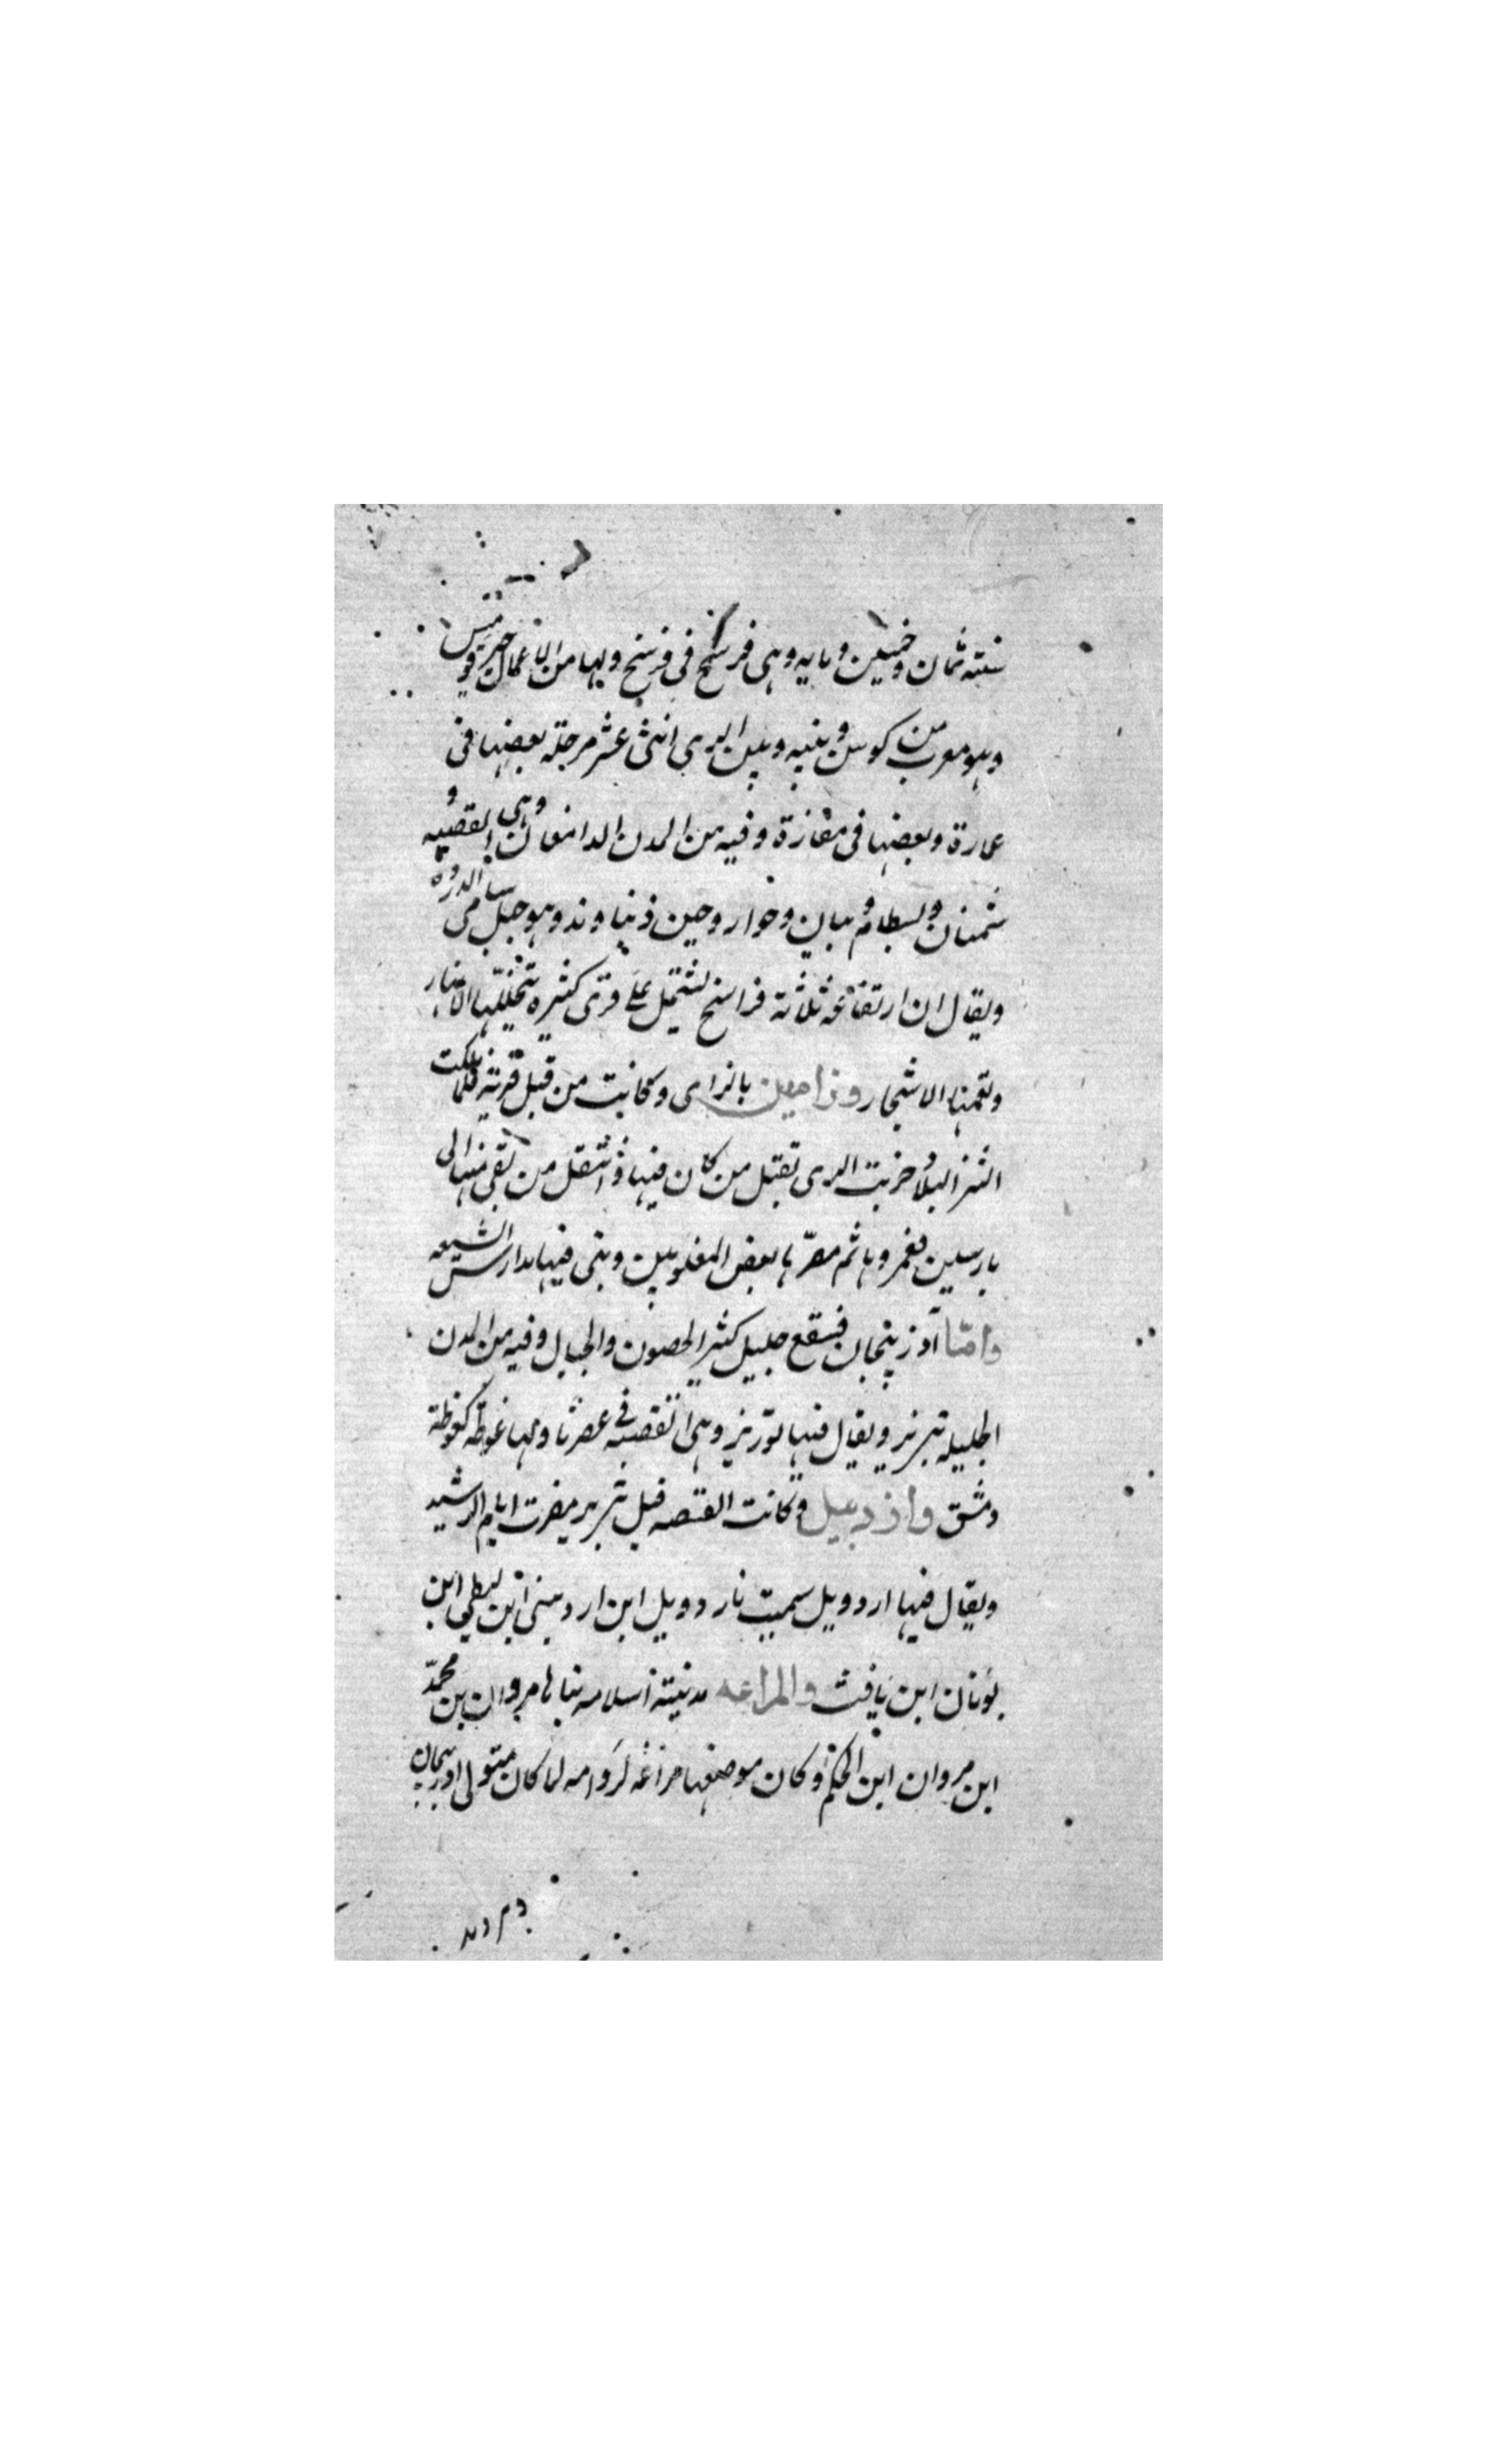 سنة ثمان وخمسين ومايه وهى فرسخ فى فرسخ ولها من الاعمال قوميس
وهو معرب من كومس وبينه وبين الرى اثنتى عشر مرحلة بعضها فى
عمارة وبعضها فى مفازة وفيه من المدن الدامغان وهى القصبه و
سمنان وبسطام و بيان وخوار وحين دنباوند وهو جبل سامى الدروه
ويقال ان ارتفاعه ثلاثة فراسخ تشتمل على قرى كثيره تتخللها الانهار
وتعمها الاشجار وزامين بالزاى وكانت من قبل قرية فلما ملكت
التتر البلاد خربت الرى بقتل من كان فيها فانتقل من بقى منها الى
بارسين فعمروها ثم مصرها بعض المغلوبين وبنى فيها مدارس الشيعه
واما آذربيجان فسقع جليل كثير الحصون والجبال وفيه من المدن
الجليله تبريز ويقال فيها توريز وهى القصبه فى عصرنا ولها غوطة كغوطة
دمشق واردبيل وكانت القصبه قبل تبريز مصرت ايام الرشيد
ويقال فيها اردويل سميت باردويل ابن اردمينى ابن لبطى ابن
يونان ابن يافث والمراغه مدنية اسلاميه بناها مروان بن محمد
ابن مروان ابن الحكم وكان موضعها مراغه لدوابه لما كان متولى اذربيجان